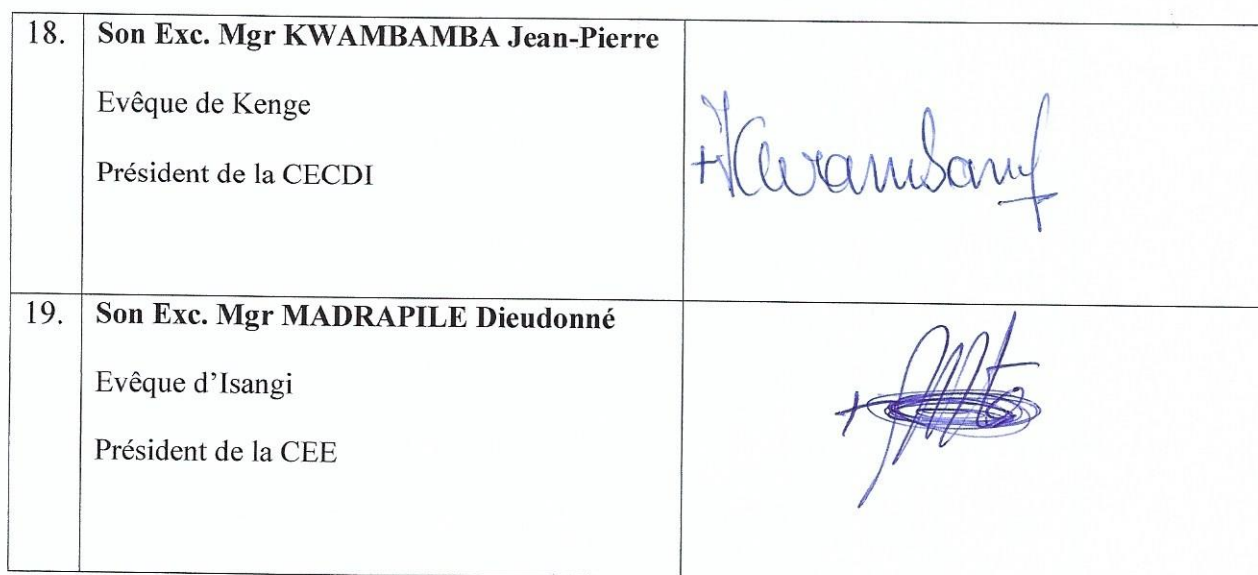 18. Son Exc. Mgr KWAMBAMBA Jean-Pierre
Evêque de Kenge
Président de la CECDI
19. Son Exc. Mgr MADRAPILE Dieudonné
Evêque d'Isangi
Président de la CEE